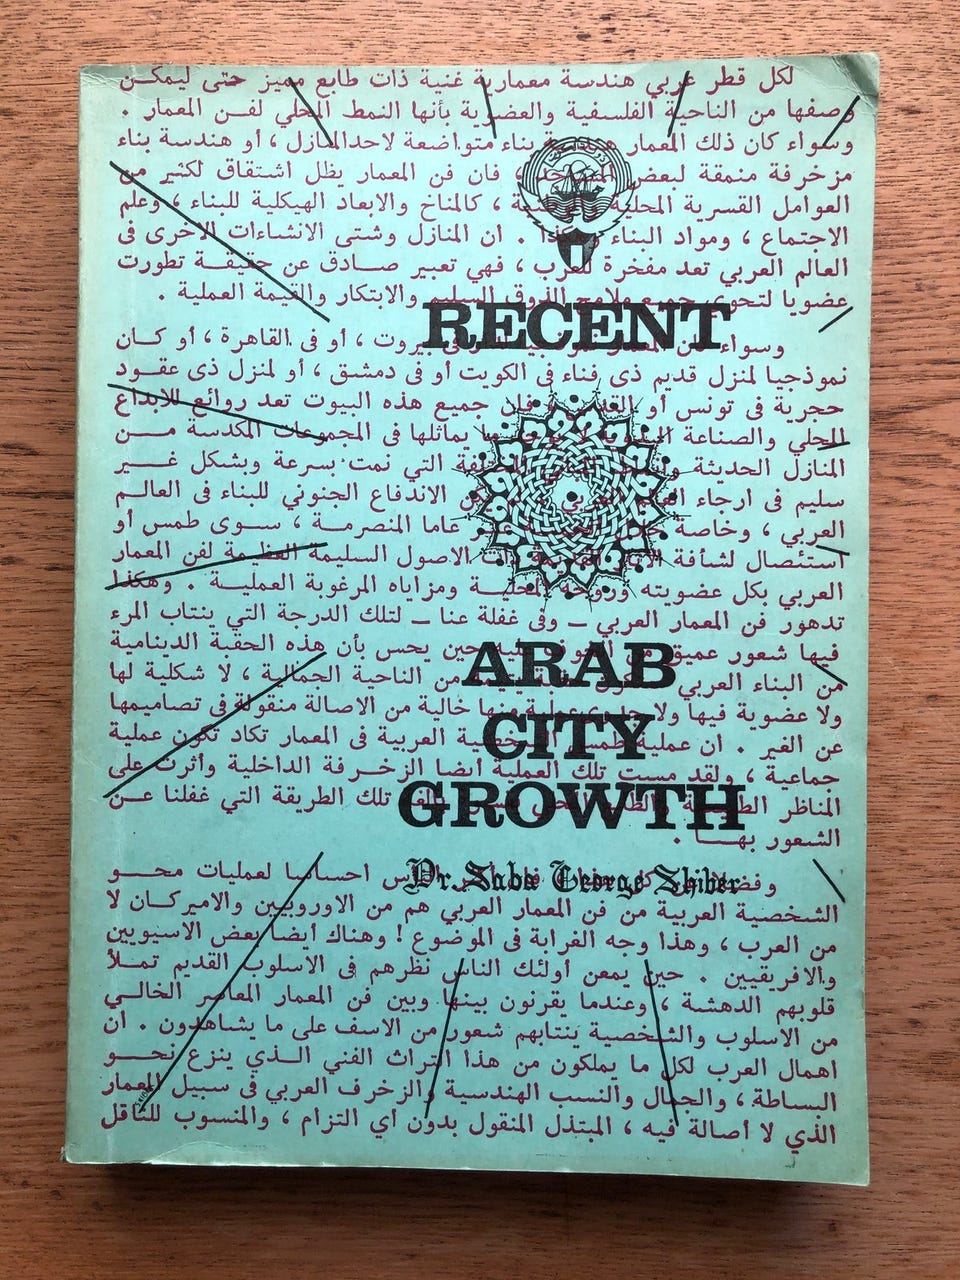 لكل قطر عربي هندسة معمارية غنية ذات طابع مميز حتى ليمكن
وصفها من الناحية الفلسفية والعضوية بأنها النمط المحلي لفن المعمار .
وسواء كان ذلك المعمار بناء متواضعة لاحدالمنازل ، أو هندسة بناء
مزخرفة منمقة لبعض فان فن المعمار يظل اشتقاق لكثير من
العوامل القسرية المحلية ، كالمناخ والابعاد الهيكلية للبناء ، وعلم
الاجتماع ، ومواد البناء . ان المنازل وشتى الانشاءات الاخرى فى
العالم العربي تعد مفخرة للعرب ، فهي تعبير صادق عن حقيقة تطورت
عضويا لتحوي جميع ملامح الذوق السليم والابتكار والقيمة العملية .
RECENT
وسواء بيروت ، أو فى القاهرة ، أو كان
نموذجيا لمنزل قديم ذى فناء فى الكويت أو فى دمشق ، أو لمنزل ذى عقود
حجرية فى تونس أو فان جميع هذه البيوت تعد روائع للابداع
المحلي والصناعة ما يماثلها فى المجموعات المكدسة من
المنازل الحديثة التي نمت بسرعة وبشكل غير
سليم فى ارجاء الاندفاع الجنوني للبناء فى العالم
العربي ، وخاصة عاما المنصرمة ، سوى طمس أو
استئصال لشأفة الاصول السليمة العظيمة لفن المعمار
العربي بكل عضويته وروحه المحلية ومزاياه المرغوبة العملية . وهكذا
تدهور فن المعمار العربي ــ وفى غفلة عنا ــ لتلك الدرجة التي ينتاب المرء
فيها شعور عميق من حين يحس بأن هذه الحقبة الدينامية
من البناء العربي من الناحية الجمالية ، لا شكلية لها
ARAB
ولا عضوية فيها ولا خالية من الاصالة منقولة فى تصاميمها
عن الغير . ان عملية طمس الشخصية العربية فى المعمار تكاد تكون عملية
CITY
جماعية ، ولقد مست تلك العملية أيضا الزخرفة الداخلية وأثرت على
المناظر تلك الطريقة التي غفلنا عن
GROWTH
الشعور بها .
Dr. Saba George Shiber
احساسا لعمليات محو
الشخصية العربية من فن المعمار العربي هم من الاوروبيين والاميركان لا
من العرب ، وهذا وجه الغرابة فى الموضوع ! وهناك أيضا بعض الاسيويين
والافريقيين . حين يمعن أولئك الناس نظرهم فى الاسلوب القديم تملأ
قلوبهم الدهشة ، وعندما يقرنون بينها وبين فن المعمار المعاصر الخالي
من الاسلوب والشخصية ينتابهم شعور من الاسف على ما يشاهدون . ان
اهمال العرب لكل ما يملكون من هذا التراث الفني الذي ينزع نحو
البساطة ، والجمال والنسب الهندسية والزخرف العربي فى سبيل المعمار
الذي لا أصالة فيه ، المبتذل المنقول بدون اي التزام ، والمنسوب للناقل